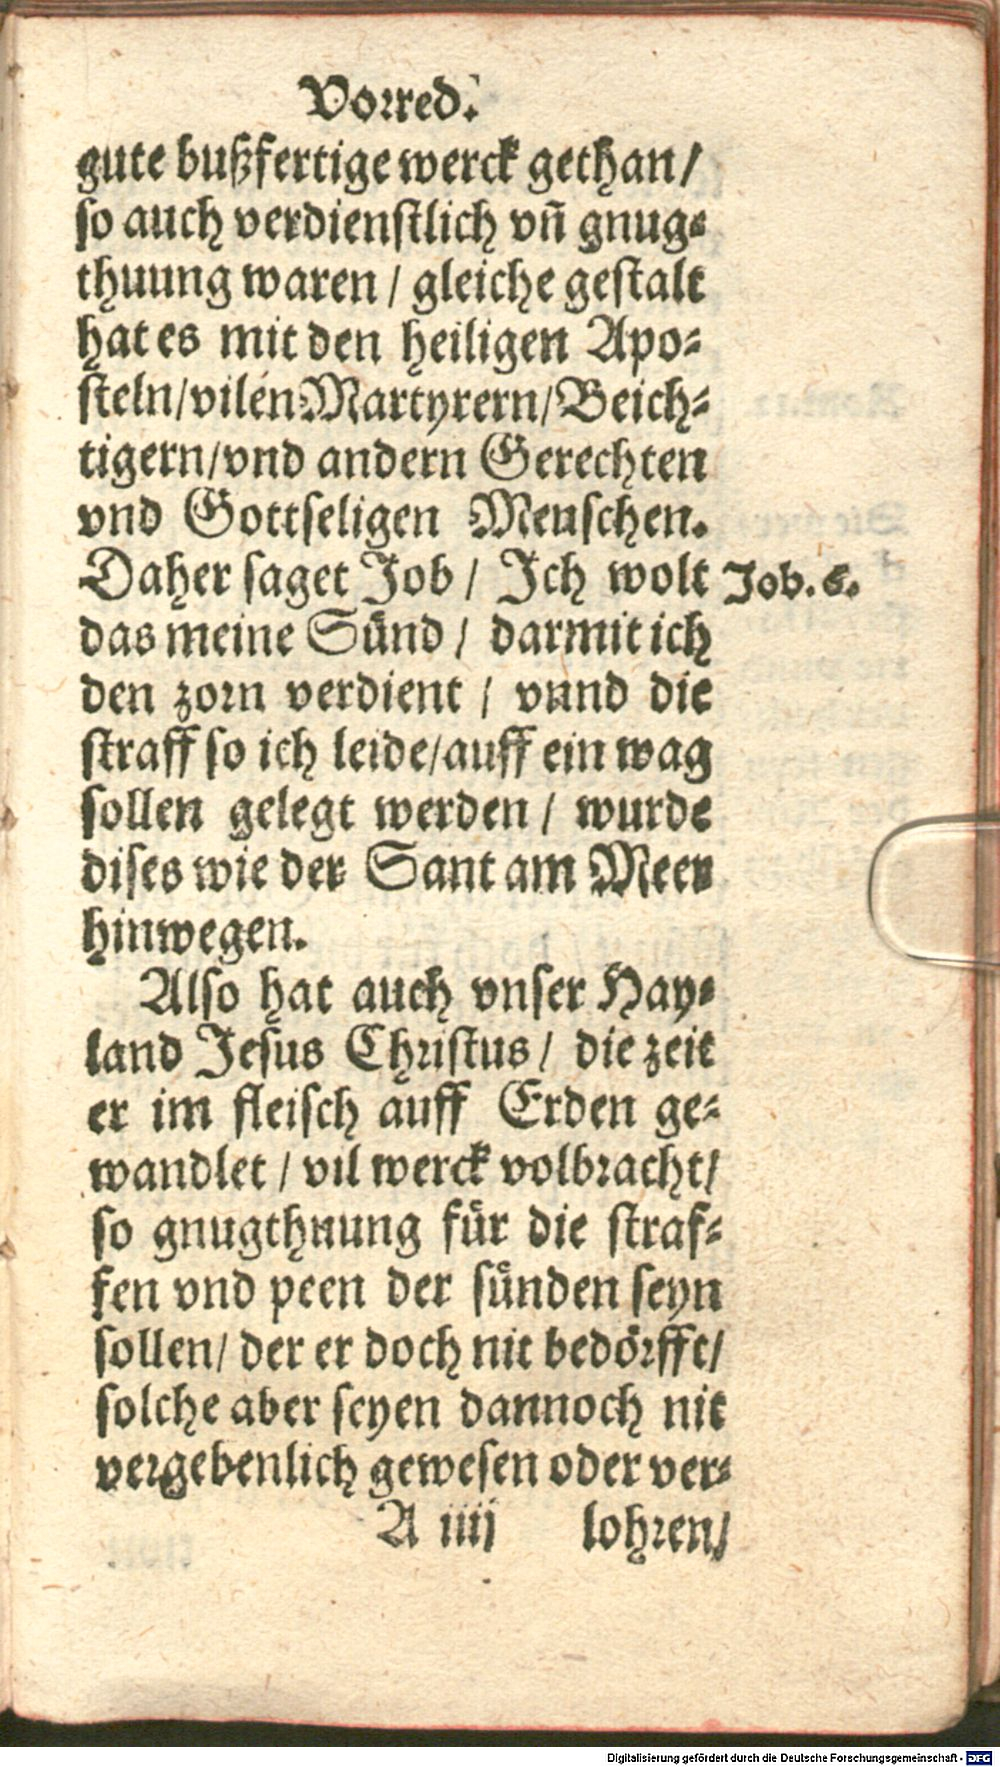 Vorred.
gute bußfertige werck gethan/
so auch verdienstlich vñ gnug-
thuung waren / gleiche gestalt
hat es mit den heiligen Apo-
steln/vilen Martyrern/Beich-
tigern/vnd andern Gerechten
vnd Gottseligen Menschen.
Daher saget Job / Ich wolt
Job. 6.
das meine Sünd / darmit ich
den zorn verdient / vnnd die
straff so ich leide/auff ein wag
sollen gelegt werden / wurde
dises wie der Sant am Meer
hinwegen.
Also hat auch vnser Hay-
land Jesus Christus / die zeit
er im fleisch auff Erden ge-
wandlet / vil werck volbracht/
so gnugthuung für die straf-
fen vnd peen der sünden seyn
sollen/ der er doch nit bedörfft/
solche aber seyen dannoch nit
vergebenlich gewesen oder ver-
A iiij lohren/
Digitalisierung gefördert durch die Deutsche Forschungsgemeinschaft - DFG